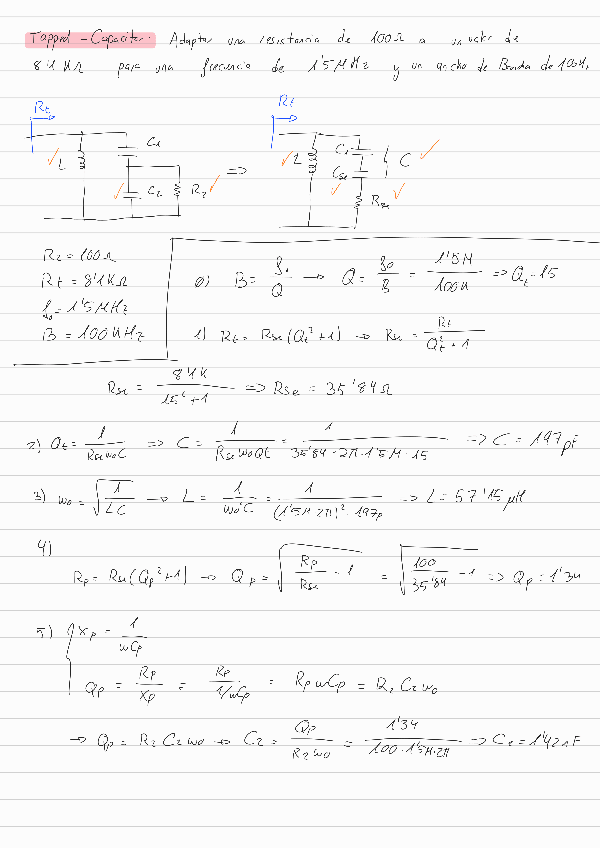 Tapped - Capacitor: Adaptar una resistencia de 100Ω a un valor de
8'1 KΩ para una frecuencia de 1'5 MHz y un ancho de Banda de 100K
Rt Rt
L C1 C2 R2 => L C1 Cse Rse C
R2 = 100Ω
Rt = 8'1KΩ
fo = 1'5 MHz
B = 100 KHz
0) B = fo/Q → Q = fo/B = 1'5M/100K => Qt = 15
1) Rt = Rse (Qt² + 1) → Rse = Rt/(Qt² + 1)
Rse = 8'1K/(15² + 1) => Rse = 35'84Ω
2) Qt = 1/(Rse wo C) => C = 1/(Rse wo Qt) = 1/(35'84 · 2π · 1'5M · 15) => C = 197 pF
3) wo = √(1/LC) → L = 1/(wo² C) = 1/((1'5M 2π)² · 197p) => L = 57'15 μH
4)
Rp = Rse (Qp² + 1) → Qp = √(Rp/Rse - 1) = √(100/35'84 - 1) => Qp = 1'34
5) Xp = 1/(wCp)
Qp = Rp/Xp = Rp/(1/wCp) = Rp w Cp = R2 C2 wo
→ Qp = R2 C2 wo → C2 = Qp/(R2 wo) = 1'34/(100 · 1'5M · 2π) → C2 = 1'42 nF